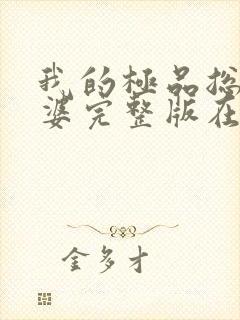 我的極品総
婆完整版在
金多才